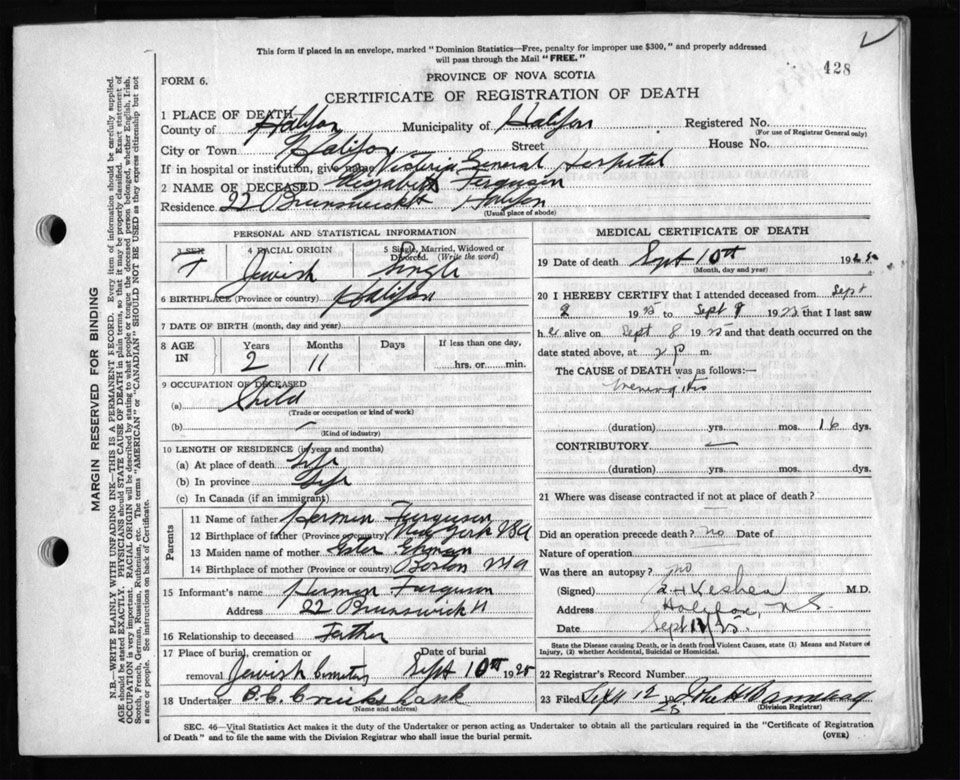 This form if placed in an envelope, marked "Dominion Statistics—Free, penalty for improper use $300," and properly addressed
will pass through the Mail "FREE."
428
FORM 6.
PROVINCE OF NOVA SCOTIA
CERTIFICATE OF REGISTRATION OF DEATH
1 PLACE OF DEATH
County of Halifax Municipality of Halifax Registered No.
(For use of Registrar General only)
City or Town Halifax Street House No.
If in hospital or institution, give name Victoria General Hospital
2 NAME OF DECEASED Elizabeth Ferguson
Residence 22 Brunswick St Halifax
(Usual place of abode)
PERSONAL AND STATISTICAL INFORMATION
3 SEX 4 RACIAL ORIGIN 5 Single, Married, Widowed or
Divorced. (Write the word)
F Jewish Single
6 BIRTHPLACE (Province or country) Halifax
7 DATE OF BIRTH (month, day and year)
8 AGE IN Years Months Days If less than one day,
2 11 hrs. or min.
9 OCCUPATION OF DECEASED
(a) Child
(Trade or occupation or kind of work)
(b) —
(Kind of industry)
10 LENGTH OF RESIDENCE (in years and months)
(a) At place of death Life
(b) In province Life
(c) In Canada (if an immigrant)
Parents
11 Name of father Herman Ferguson
12 Birthplace of father (Province or country) New York USA
13 Maiden name of mother Ester
14 Birthplace of mother (Province or country) Boston USA
15 Informant's name Herman Ferguson
Address 22 Brunswick St
16 Relationship to deceased Father
17 Place of burial, cremation or Date of burial
removal Jewish Cemetery Sept 10th 1925
18 Undertaker B.C. Cruickshank
(Name and address)
MEDICAL CERTIFICATE OF DEATH
19 Date of death Sept 10th 1925
(Month, day and year)
20 I HEREBY CERTIFY that I attended deceased from Sept
2 1925 to Sept 9 1925 that I last saw
h er alive on Sept 8 1925 and that death occurred on
date stated above, at 2 p m.
The CAUSE of DEATH was as follows:—
Meningitis
(duration) yrs. mos. 16 dys.
CONTRIBUTORY —
(duration) yrs. mos. dys.
21 Where was disease contracted if not at place of death?
Did an operation precede death? no Date of
Nature of operation
Was there an autopsy? no
(Signed) M.D.
Address Halifax, N S
Date Sept /25
State the Disease causing Death, or in death from Violent Causes, state (1) Means and Nature of
Injury, (2) whether Accidental, Suicidal or Homicidal.
22 Registrar's Record Number
23 Filed Sept 12 1925
(Division Registrar)
SEC. 46—Vital Statistics Act makes it the duty of the Undertaker or person acting as Undertaker to obtain all the particulars required in the "Certificate of Registration
of Death" and to file the same with the Division Registrar who shall issue the burial permit.
(OVER)
MARGIN RESERVED FOR BINDING
N.B.—WRITE PLAINLY WITH UNFADING INK—THIS IS A PERMANENT RECORD. Every item of information should be carefully supplied.
AGE should be stated EXACTLY. PHYSICIANS should STATE CAUSE OF DEATH in plain terms, so that it may be properly classified. Exact statement of
OCCUPATION is very important. RACIAL ORIGIN will be described by stating to what people or tongue the deceased person belonged, whether English, Irish,
Scotch, French, German, Russian, Ruthenian, etc. The terms "AMERICAN" or "CANADIAN" SHOULD NOT BE USED as they express citizenship but not
a race or people. See instructions on back of Certificate.